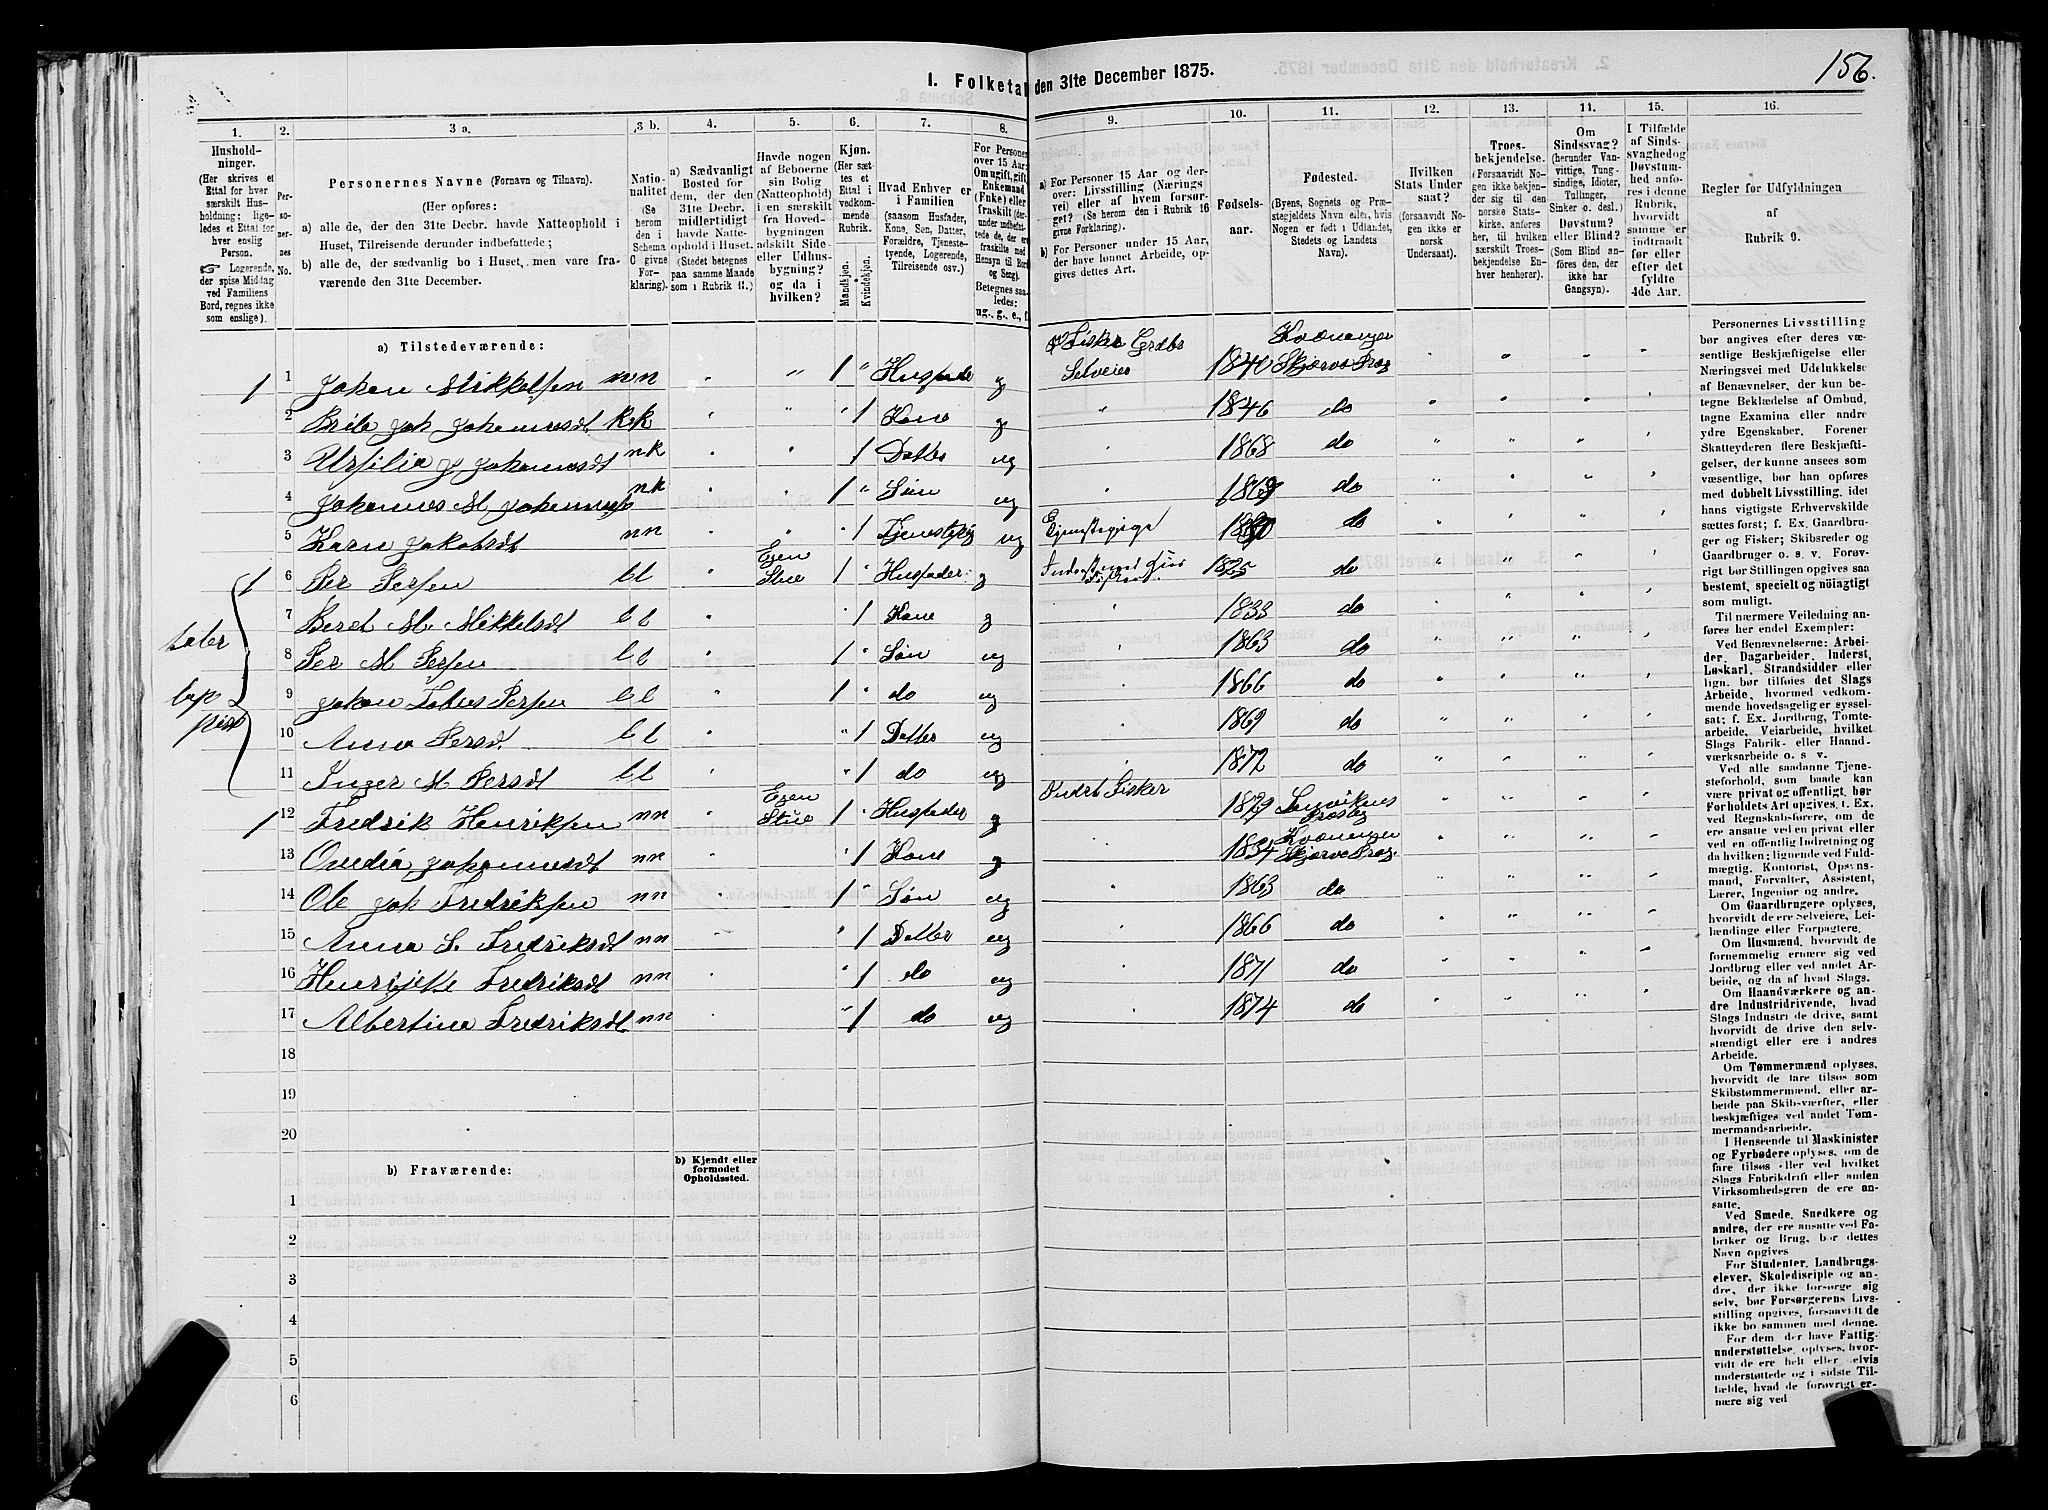 156.
I. Folketal den 31te December 1875.
1. 2. 3 a. 3 b. 4. 5. 6. 7. 8. 9. 10. 11. 12. 13. 14. 15. 16.
Hushold-
ninger.
(Her skrives et
Ettal for hver
særskilt Hus-
holdning; lige-
ledes et Ettal for
hver enslig
Person.
☞ Logerende,
der spise Middag
ved Familiens
Bord, regnes ikke
som enslige).
Per-
so-
ner-
nes
No.
Personernes Navne (Fornavn og Tilnavn).
(Her opføres:
a) alle de, der den 31te Decbr. havde Natteophold i
Huset, Tilreisende derunder indbefattede;
b) alle de, der sædvanlig bo i Huset, men vare fra-
værende den 31te December.
Natio-
nalitet
(Se
herom
den i
Schema
C givne
For-
klaring).
a) Sædvanligt
Bosted for
dem, der den
31te Decbr.
midlertidigt
havde Natte-
ophold i Huset.
(Stedet betegnes
paa samme Maade
som i Rubrik 11.)
Havde nogen
af Beboerne
sin Bolig
(Natteophold)
i en særskilt
fra Hoved-
bygningen
adskilt Side-
eller Udhus-
bygning?
og da i
hvilken?
Kjøn.
(Her sæt-
tes et
Ettal i
vedkom-
mende
Rubrik.
Mandkjøn.
Kvindekjøn.
Hvad Enhver er
i Familien
(saasom Husfader,
Kone, Søn, Datter,
Forældre, Tjeneste-
tyende, Logerende,
Tilreisende osv.)
For Personer
over 15 Aar:
Om ugift, gift,
Enkemand
(Enke) eller
fraskilt
Hensyn til Bord
og Seng).
Betegnes saa-
ledes:
ug., g., e., f.
a) For Personer 15 Aar og der-
over: Livsstilling (Nærings
vei) eller af hvem forsør-
get? (Se herom den i Rubrik 16
givne Forklaring).
b) For Personer under 15 Aar,
der have lønnet Arbeide, op-
gives dettes Art.
Fødsels-
aar.
Fødested.
(Byens, Sognets og Præ-
stegjeldets Navn eller, hvis
Nogen er født i Udlandet,
Stedets og Landets
Navn).
Hvilken
Stats Under
saat?
(forsaavidt No-
gen ikke er
norsk
Undersaat).
Troes-
bekjendelse.
(Forsaavidt No-
gen ikke bekjen-
der sig til den
norske Stats-
kirke, anføres
her, til hvilken
særskilt Troes-
bekjendelse En-
hver henhører).
Om
Sindssvag?
(herunder Van-
vittige, Tung-
sindige, Idioter,
Tullinger,
Sinker o. desl.)
Døvstum?
eller Blind?
(Som Blind an-
føres den, der
ikke har
Gangsyn).
I Tilfælde
af Sinds-
svaghed og
Døvstum-
hed anfø-
res i denne
Rubrik,
hvorvidt
samme er
indtraadt
før eller
efter det
fyldte
4de Aar.
Regler for Udfyldningen
af
Rubrik 9.
a) Tilstedeværende:
1 1 Johan Mikkelsen nn 1 Husfader g Fisker Grdbr Selveier 1840 Kvænanger Skjervø Præg
2 Johannesdt 1 Kone g 1846 do
3 nk 1 Datter ug 1868 do
4 Johannes M nk 1 Søn ug 1869 do
5 Karn Jakobsdt nn 1 ug Tjenestepige do
1 6 Per Persen l l Egen Stue 1 Husfader g 1825 do
7 Beret M. Mikkelsdt l l 1 Kone g 1833 do
8 Per M Persen l l 1 Søn ug 1863 do
9 Johan Persen l l 1 do ug 1866 do
10 Anna Persdt l l 1 Datter ug 1869 do
11 Inger M Persdt l l 1 do ug 1872 do
1 12 Fredrik Henriksen nn Egen Stue 1 Husfader g Fisker 1829
13 Johannesdt nn 1 Kone g 1834 Kvænanger Skjervø Præg.
14 Ole Joh Fredriksen nn 1 Søn ug 1863 do
15 Anna S. Fredriksdt nn 1 Datter ug 1866 do
16 Fredriksdt nn 1 do ug 1871 do
17 Albertina Fredriksdt nn 1 do ug 1874 do
18
19
20
taler
lap
pisk
b) Fraværende:
b) Kjendt eller
formodet
Opholdssted.
1
2
3
4
5
6
Personernes Livsstilling
bør angives efter deres væ-
sentlige Beskjæftigelse eller
Næringsvei med Udelukkelse
af Benævnelser, der kun be-
tegne Beklædelse af Ombud,
tagne Examina eller andre
ydre Egenskaber. Forener
Skatteyderen flere Beskjæfti-
gelser, der kunne ansees som
væsentlige, bør han opføres
med dobbelt Livsstilling, idet
hans vigtigste Erhvervskilde
sættes først; f. Ex. Gaardbru-
ger og Fisker; Skibsreder og
Gaardbruger o. s. v. Forøv-
rigt bør Stillingen opgives saa
bestemt, specielt og nöiagtigt
som muligt.
Til nærmere Veiledning an-
føres her endel Exempler:
Ved Benævnelserne: Arbei-
der, Dagarbeider, Inderst,
Løskarl, Strandsidder eller
lign. bør tilføies det Slags
Arbeide, hvormed vedkom-
mende hovedsagelig er syssel-
sat; f. Ex. Jordbrug, Tomte-
arbeide, Veiarbeide, hvilket
Slags Fabrik- eller Haand-
værksarbeide o. s. v.
Ved alle saadanne Tjene-
steforhold, som baade kan
være privat og offentligt, bør
Forholdets Art opgives, t. Ex.
ved Regnskabsførere, om de
ere ansatte ved en privat eller
ved en offentlig Indretning og
da hvilken; lignende ved Fuld-
mægtig, Kontorist, Opsyns-
mand, Forvalter, Assistent,
Lærer, Ingeniør og andre.
Om Gaardbrugere oplyses,
hvorvidt de ere Selveiere, Lei-
lændinge eller Forpagtere.
Om Husmænd, hvorvidt de
fornemmelig ernære sig ved
Jordbrug eller ved andet Ar-
beide, og da af hvad Slags.
Om Haandværkere og an-
dre Industridrivende, hvad
Slags Industri de drive, samt
hvorvidt de drive den selv-
stændigt eller ere i andres
Arbeide.
Om Tømmermænd oplyses,
hvorvidt de fare tilsøs som
Skibstømmermænd, eller ar-
beide paa Skibsværfter, eller
beskjæftiges ved andet Tøm-
mermandsarbeide.
I Henseende til Maskinister
og Fyrbødere oplyses, om de
fare tilsøs eller ved hvilket
Slags Fabrikdrift eller anden
Virksomhedsgren de ere an-
satte.
Ved Smede, Snedkere og
andre, der ere ansatte ved Fa-
briker og Brug, bør dettes
Navn opgives
For Studenter, Landbrugs-
elever, Skoledisciple og an-
dre, der ikke forsørge sig
selv, bør Forsørgerens Livs-
stilling opgives, forsaavidt de
ikke bo sammen med denne.
For dem, der have Fattig-
understøttelse, oplyses, hvor-
vidt de ere helt eller delvis
understøttede og i sidste Til-
fælde, hvad de forøvrigt er-
nære sig ved